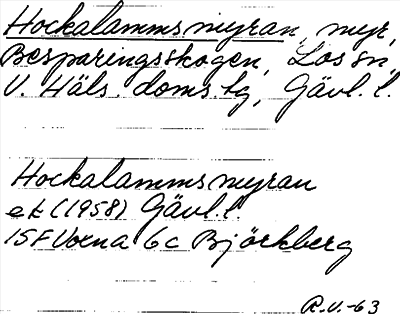 Hockalammsmyran, myr,
Besparingsskogen, Los sn,
V. Häls. doms.tg, Gävl. l.
Hockalammsmyran
ek (1958) Gävl. l.
15F Voxna 6c Björkberg
R.V.-63